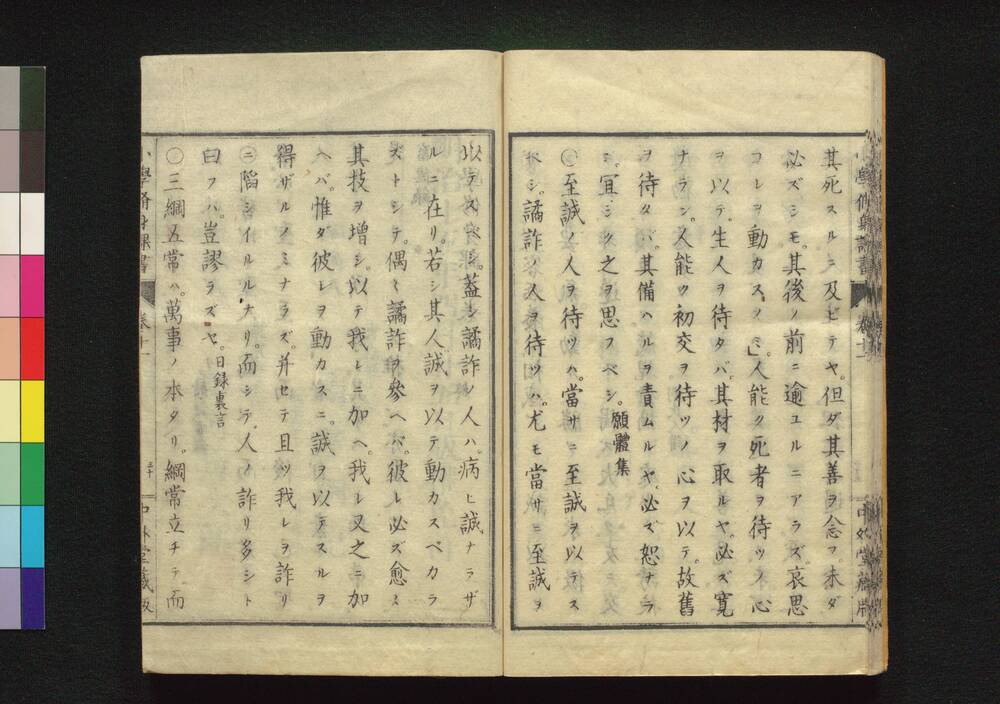 其死スルニ及ビテヤ。但ダ其善ヲ念フ。未ダ
必ズシモ。其後ノ前ニ逾ユルニアラズ。哀思
コレヲ動カスノミ」人能ク死者ヲ待ツノ心
ヲ以テ。生人ヲ待タバ。其材ヲ取ルヤ。必ズ寛
ナラン。人能ク初交ヲ待ツノ心ヲ以テ。故舊
ヲ待タバ。其備ハルヲ責ムルヤ。必ズ恕ナラ
ン。宜シク之ヲ思フベシ。願體集
〇至誠ノ人ヲ待ツハ。當サニ至誠ヲ以テス
ベシ。譎詐ノ人ヲ待ツハ。尤モ當サニ至誠ヲ
以テスベシ。蓋シ譎詐ノ人ハ。病ヒ誠ナラザ
ルニ在リ。若シ其人誠ヲ以テ動カスベカラ
ズトシテ。偶〻譎詐ヲ參ヘバ。彼レ必ズ愈〻
其技ヲ增シ。以テ我レニ加ヘ。我レ又之ニ加
ヘバ。惟ダ彼レヲ動カスニ。誠ヲ以テスルヲ
得ザルノミナラズ。并セテ且ツ我レヲ詐リ
ニ陷シイルルナリ。而シテ。人ノ詐リ多シト
曰フハ。豈謬ラズヤ。日錄裏言
〇三綱五常ハ。萬事ノ本タリ。綱常立チテ。而
小學脩身課書 卷十一 中外堂藏版